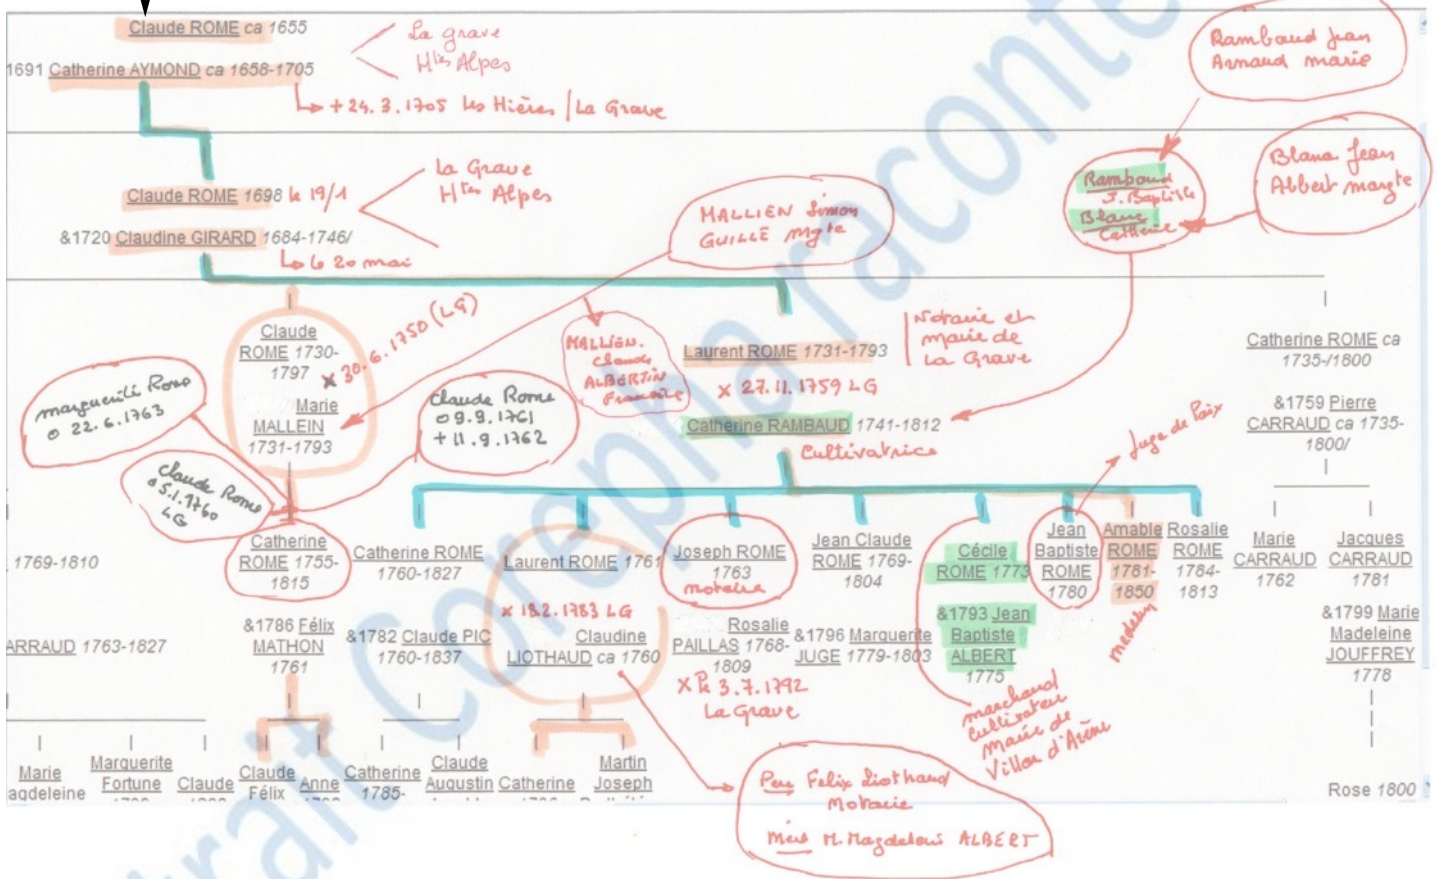 Claude ROME ca 1655
La grave
Htes Alpes
1691 Catherine AYMOND ca 1658-1705
+ 24.3.1705 les Hières / La Grave
Rambaud Jean
Arnaud marie
Claude ROME 1698 le 19/1
La Grave
Htes Alpes
&1720 Claudine GIRARD 1684-1746/
le 20 mai
MALLIEN Simon
GUILLE Mgte
Rambaud
J. Baptiste
Blanc
Catherine
Blanc Jean
Albert margte
Claude
ROME 1730-
1797
x 30.6.1750 (LG)
Marie
MALLEIN
1731-1793
MALLIEN.
Claude
ALBERTIN
Françoise
Laurent ROME 1731-1793
Notaire et
maire de
La Grave
x 27.11.1759 LG
Catherine RAMBAUD 1741-1812
Cultivatrice
Catherine ROME ca
1735-/1800
&1759 Pierre
CARRAUD ca 1735-
1800/
marguerite Rome
o 22.6.1763
Claude Rome
o 9.9.1761
+ 11.9.1762
Claude Rome
o 5.1.1760
LG
Juge de Paix
1769-1810
Catherine
ROME 1755-
1815
Catherine ROME
1760-1827
Laurent ROME 1761
Joseph ROME
1763
notaire
Jean Claude
ROME 1769-
1804
Cécile
ROME 1773
Jean
Baptiste
ROME
1780
Amable
ROME
1781-
1850
medecin
Rosalie
ROME
1784-
1813
Marie
CARRAUD
1762
Jacques
CARRAUD
1781
ARRAUD 1763-1827
&1786 Félix
MATHON
1761
&1782 Claude PIC
1760-1837
x 18.2.1783 LG
Claudine
LIOTHAUD ca 1760
Rosalie
PAILLAS 1768-
1809
x le 3.7.1792
La Grave
&1796 Marguerite
JUGE 1779-1803
&1793 Jean
Baptiste
ALBERT
1775
marchand
cultivateur
maire de
Villar d'Arène
&1799 Marie
Madeleine
JOUFFREY
1778
Marie
agdeleine
Marguerite
Fortune
Claude
Claude
Félix
Anne
Catherine
1785-
Claude
Augustin
Catherine
Martin
Joseph
Rose 1800
Père Felix Liothaud
Notaire
Mère M. Magdeleine ALBERT
trait Corepha raconte